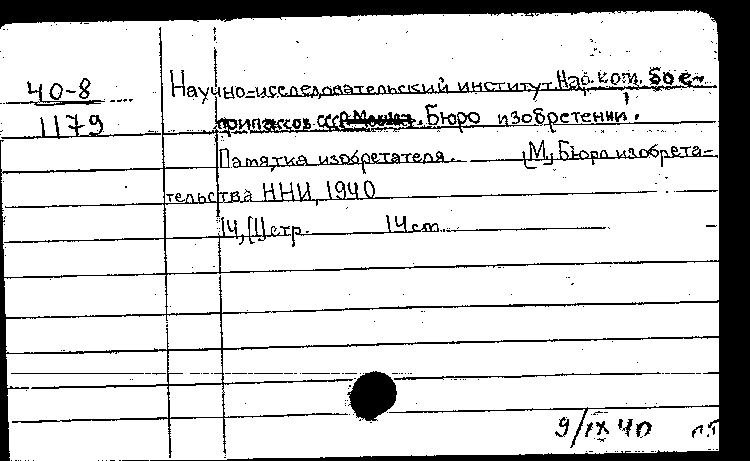 40-8
1179
Научно-исследовательский институт Нар. ком. бое-
припасов СССР. Бюро изобретений.
Памятка изобретателя. [М], Бюро изобрета-
тельства ННИ, 1940
14, [1] стр. 14 см.
9/IX 40